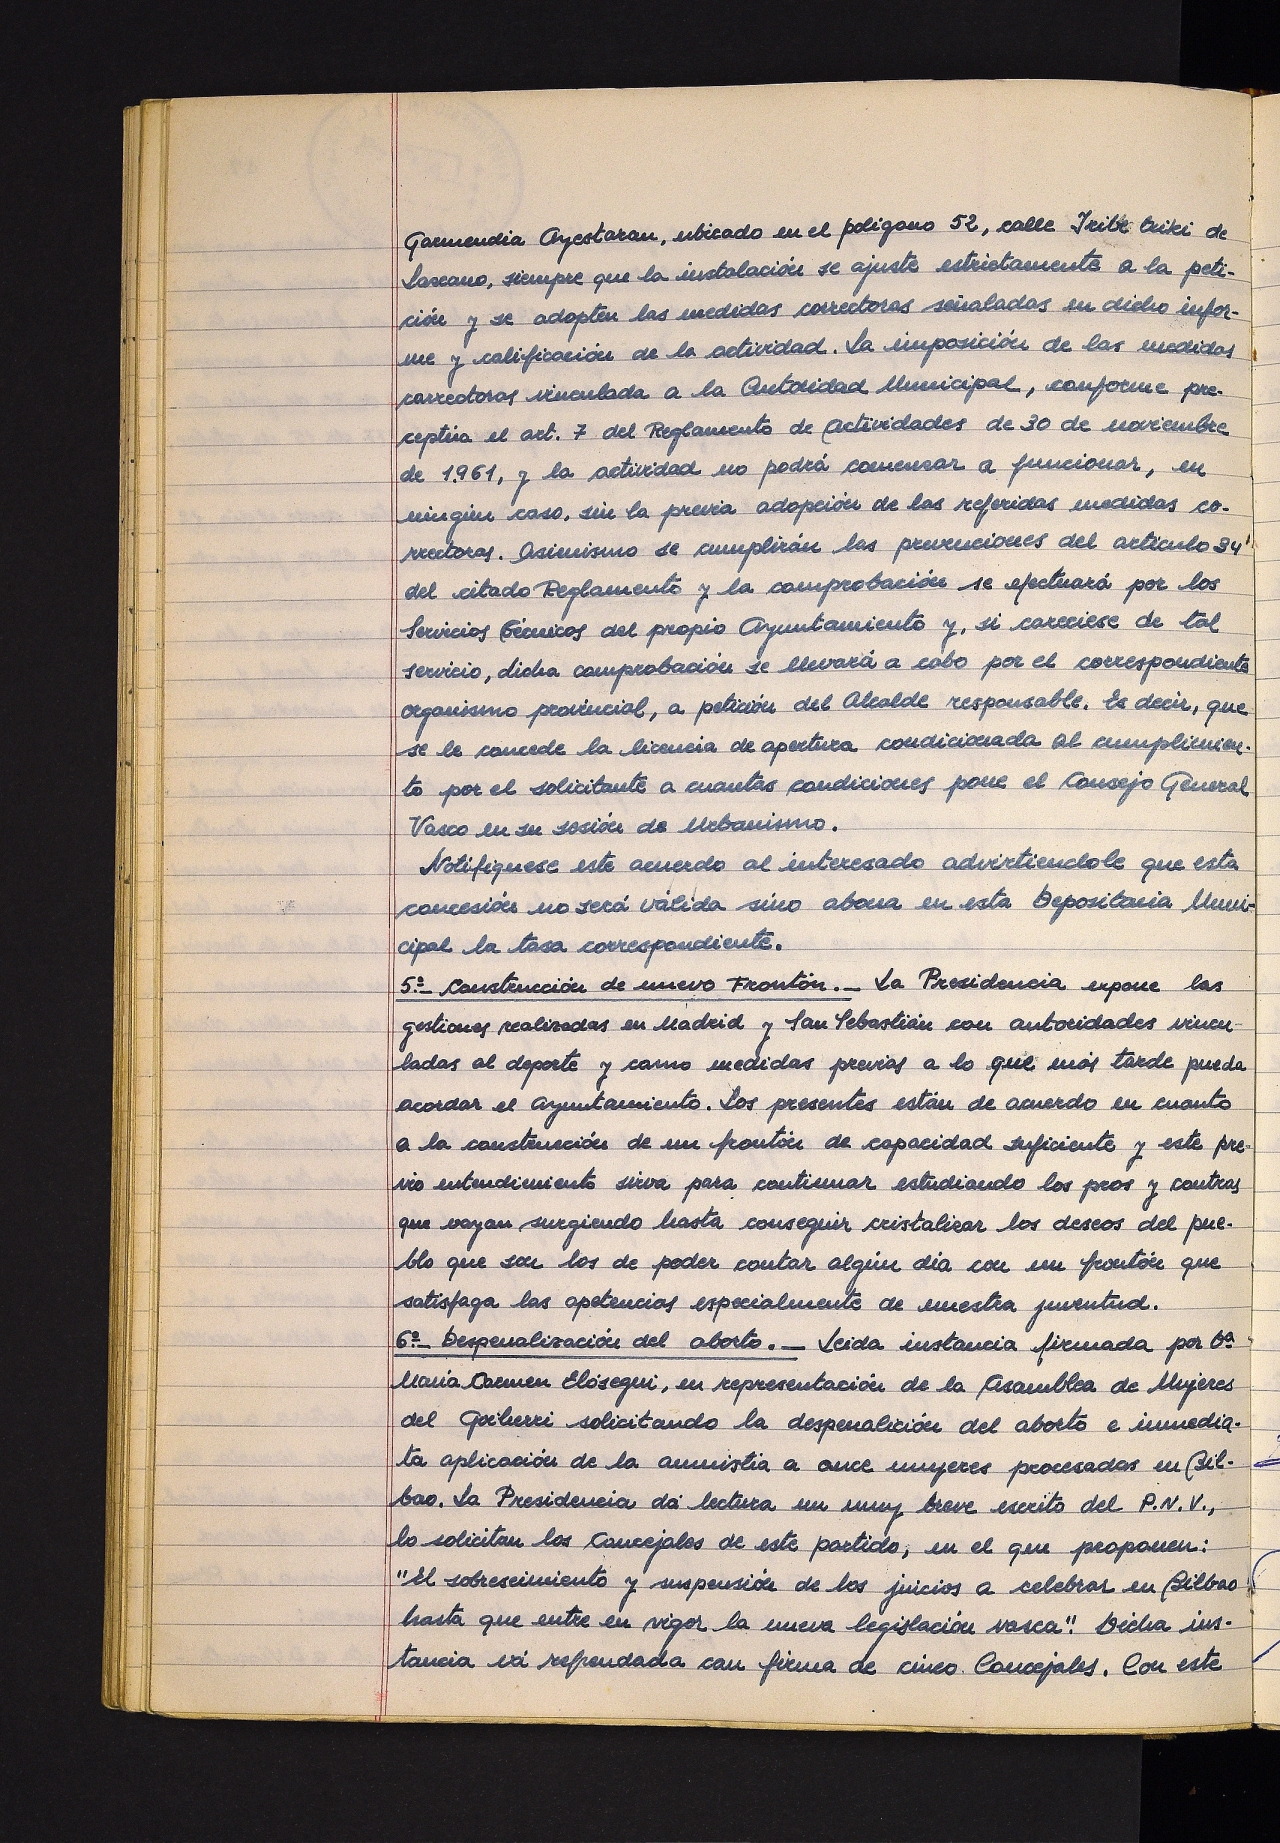 Garmendia Ayestaran, ubicado en el poligono 52, calle Iribe txiki de
Lazcano, siempre que la instalación se ajuste estrictamente a la peti-
ción y se adopten las medidas correctoras señaladas en dicho infor-
me y calificación de la actividad. La imposición de las medidas
correctoras vinculada a la Autoridad Municipal, conforme pre-
ceptúa el art. 7 del Reglamento de actividades de 30 de noviembre
de 1.961, y la actividad no podrá comenzar a funcionar, en
ningún caso, sin la previa adopción de las referidas medidas co-
rrectoras. Asimismo se cumplirán las prevenciones del artículo 34
del citado Reglamento y la comprobación se efectuará por los
Servicios Técnicos del propio Ayuntamiento y, si careciese de tal
servicio, dicha comprobación se llevará a cabo por el correspondiente
organismo provincial, a petición del Alcalde responsable. Es decir, que
se le concede la licencia de apertura condicionada al cumplimien-
to por el solicitante a cuantas condiciones pone el Consejo General
Vasco en su sesión de Urbanismo.
Notifíquese este acuerdo al interesado advirtiendole que esta
concesión no será válida sino abona en esta Depositaria Muni-
cipal la tasa correspondiente.
5º.- Construcción de nuevo Frontón.- La Presidencia expone las
gestiones realizadas en Madrid y San Sebastián con autoridades vincu-
ladas al deporte y como medidas previas a lo que más tarde pueda
acordar el Ayuntamiento. Los presentes están de acuerdo en cuanto
a la construcción de un frontón de capacidad suficiente y este pre-
vio entendimiento sirva para continuar estudiando los pros y contras
que vayan surgiendo hasta conseguir cristalizar los deseos del pue-
blo que son los de poder contar algún día con un frontón que
satisfaga las apetencias especialmente de nuestra juventud.
6º.- Despenalización del aborto.- Leida instancia firmada por Dª
María Carmen Elósegui, en representación de la Asamblea de Mujeres
del Goiherri solicitando la despenalición del aborto e inmedia-
ta aplicación de la amnistia a once mujeres procesadas en Bil-
bao. La Presidencia dá lectura un muy breve escrito del P.N.V.,
lo solicitan los Concejales de este partido, en el que proponen:
"El sobreseimiento y suspensión de los juicios a celebrar en Bilbao
hasta que entre en vigor la nueva legislación vasca". Dicha ins-
tancia vá refrendada con firma de cinco Concejales. Con este